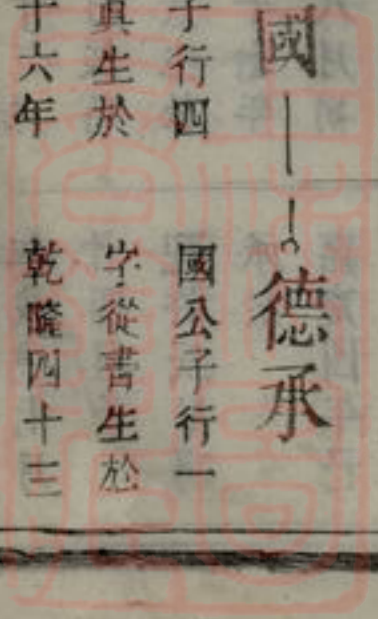 國
德承
子行四
國公子行一
生於
字從書生於
十六年
乾隆四十三